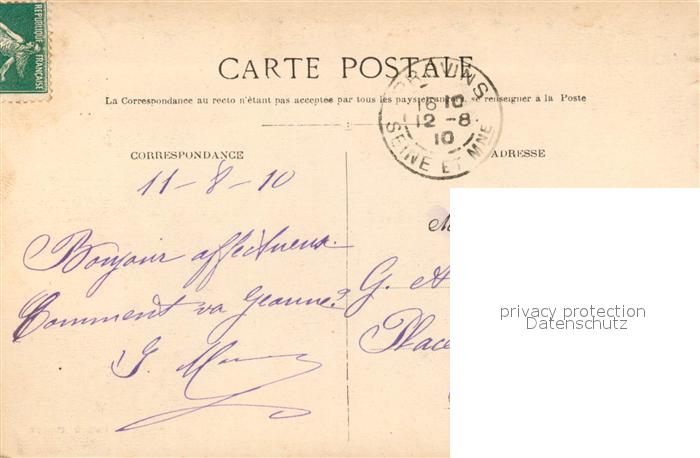 REPUBLIQUE FRANÇAISE
CARTE POSTALE
La Correspondance au recto n'étant pas acceptée par tous les pays étrangers, se renseigner à la Poste
PROVINS
16 10
12 -8
10
SEINE ET MNE
CORRESPONDANCE
ADRESSE
11-8-10
Bonjour affectueux.
Comment va Jeanne?
G.
G. A
Place
privacy protection
Datenschutz